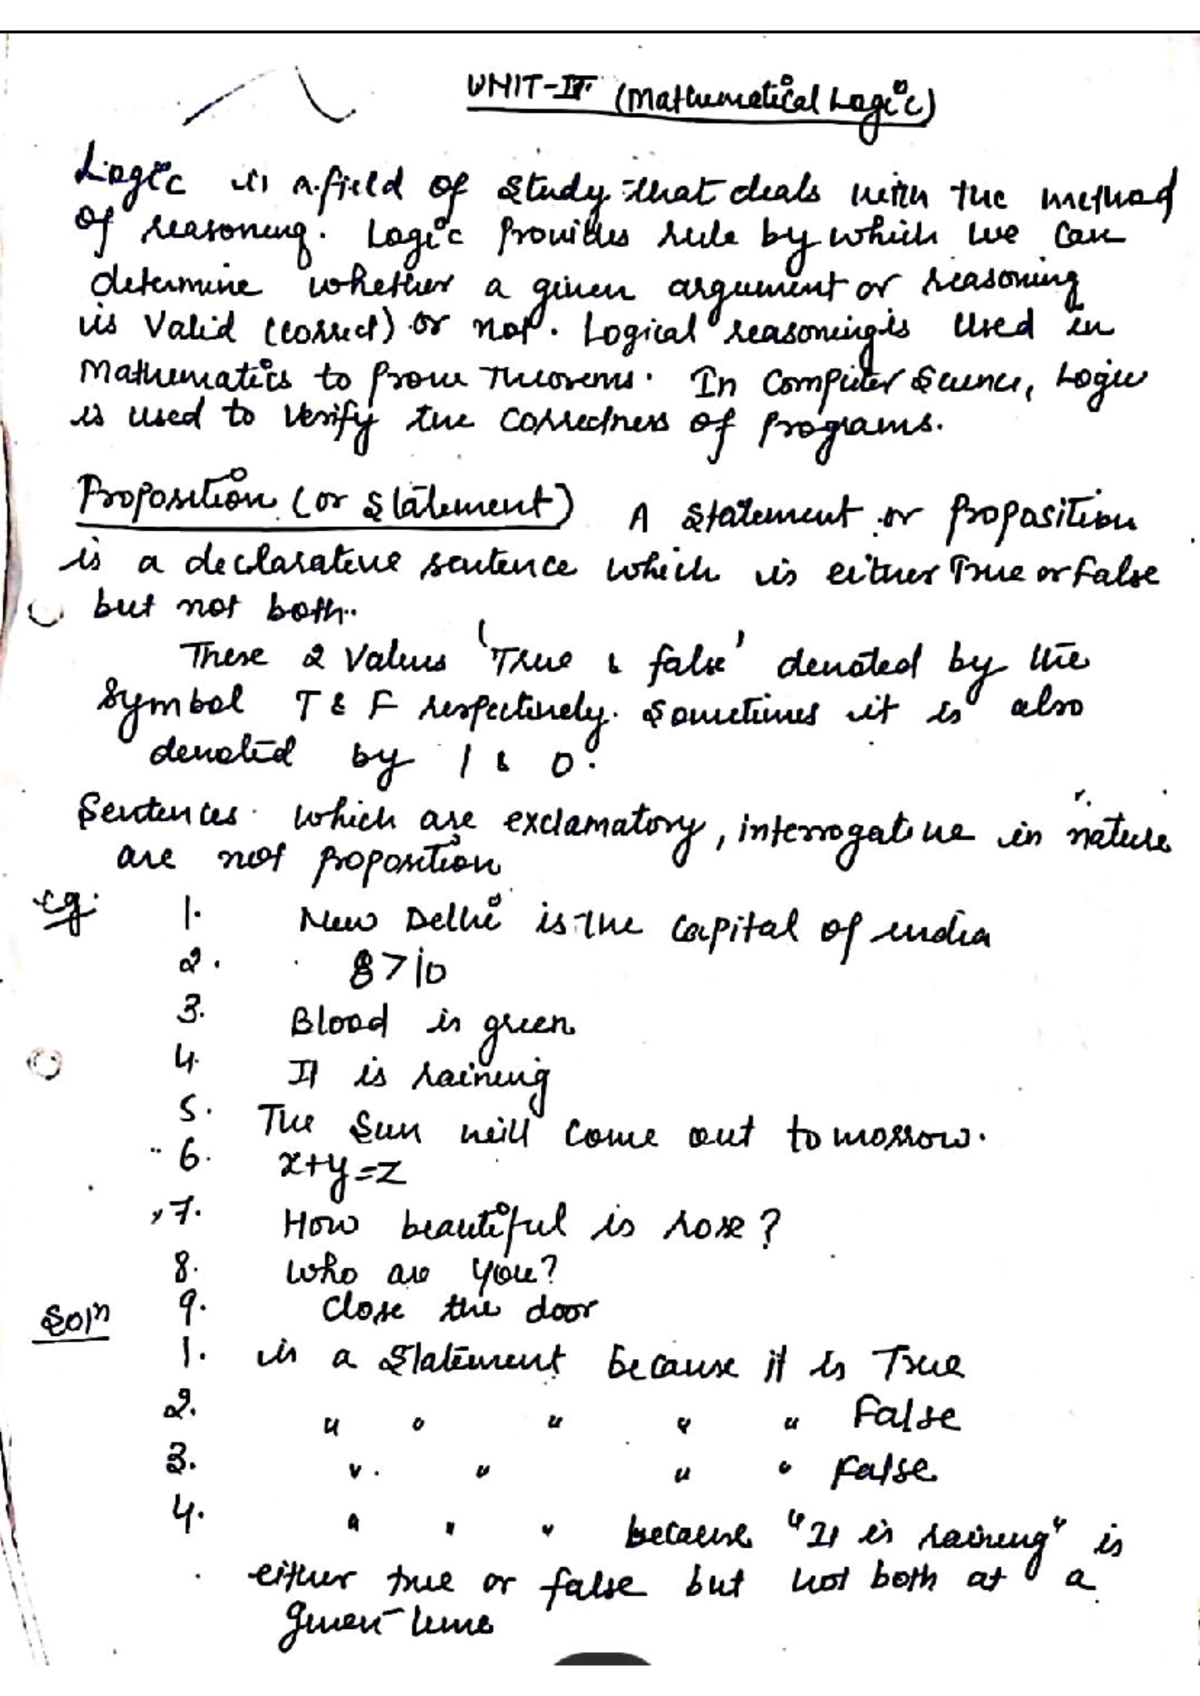 UNIT-II (Mathematical Logic)
Logic is a field of study that deals with the method
of reasoning. Logic provides rule by which we can
determine whether a given argument or reasoning
is Valid (correct) or not. Logical reasoning is used in
Mathematics to prove Theorems. In Computer Science, Logic
is used to verify the correctness of programs.
Proposition (or Statement) A statement or proposition
is a declarative sentence which is either True or false
but not both.
These 2 Values 'True & false' denoted by the
Symbol T & F respectively. Sometimes it is also
denoted by 1 & 0.
Sentences which are exclamatory, interrogative in nature
are not proposition
eg:
1. New Delhi is the capital of india
2. 8>10
3. Blood is green
4. It is raining
5. The Sun will come out tomorrow.
6. x+y=z
7. How beautiful is rose?
8. Who are you?
9. Close the door
Soln
1. is a Statement because it is True
2. " " " " " False
3. " " " " False
4. " " " because "It is raining" is
either true or false but not both at a
given time